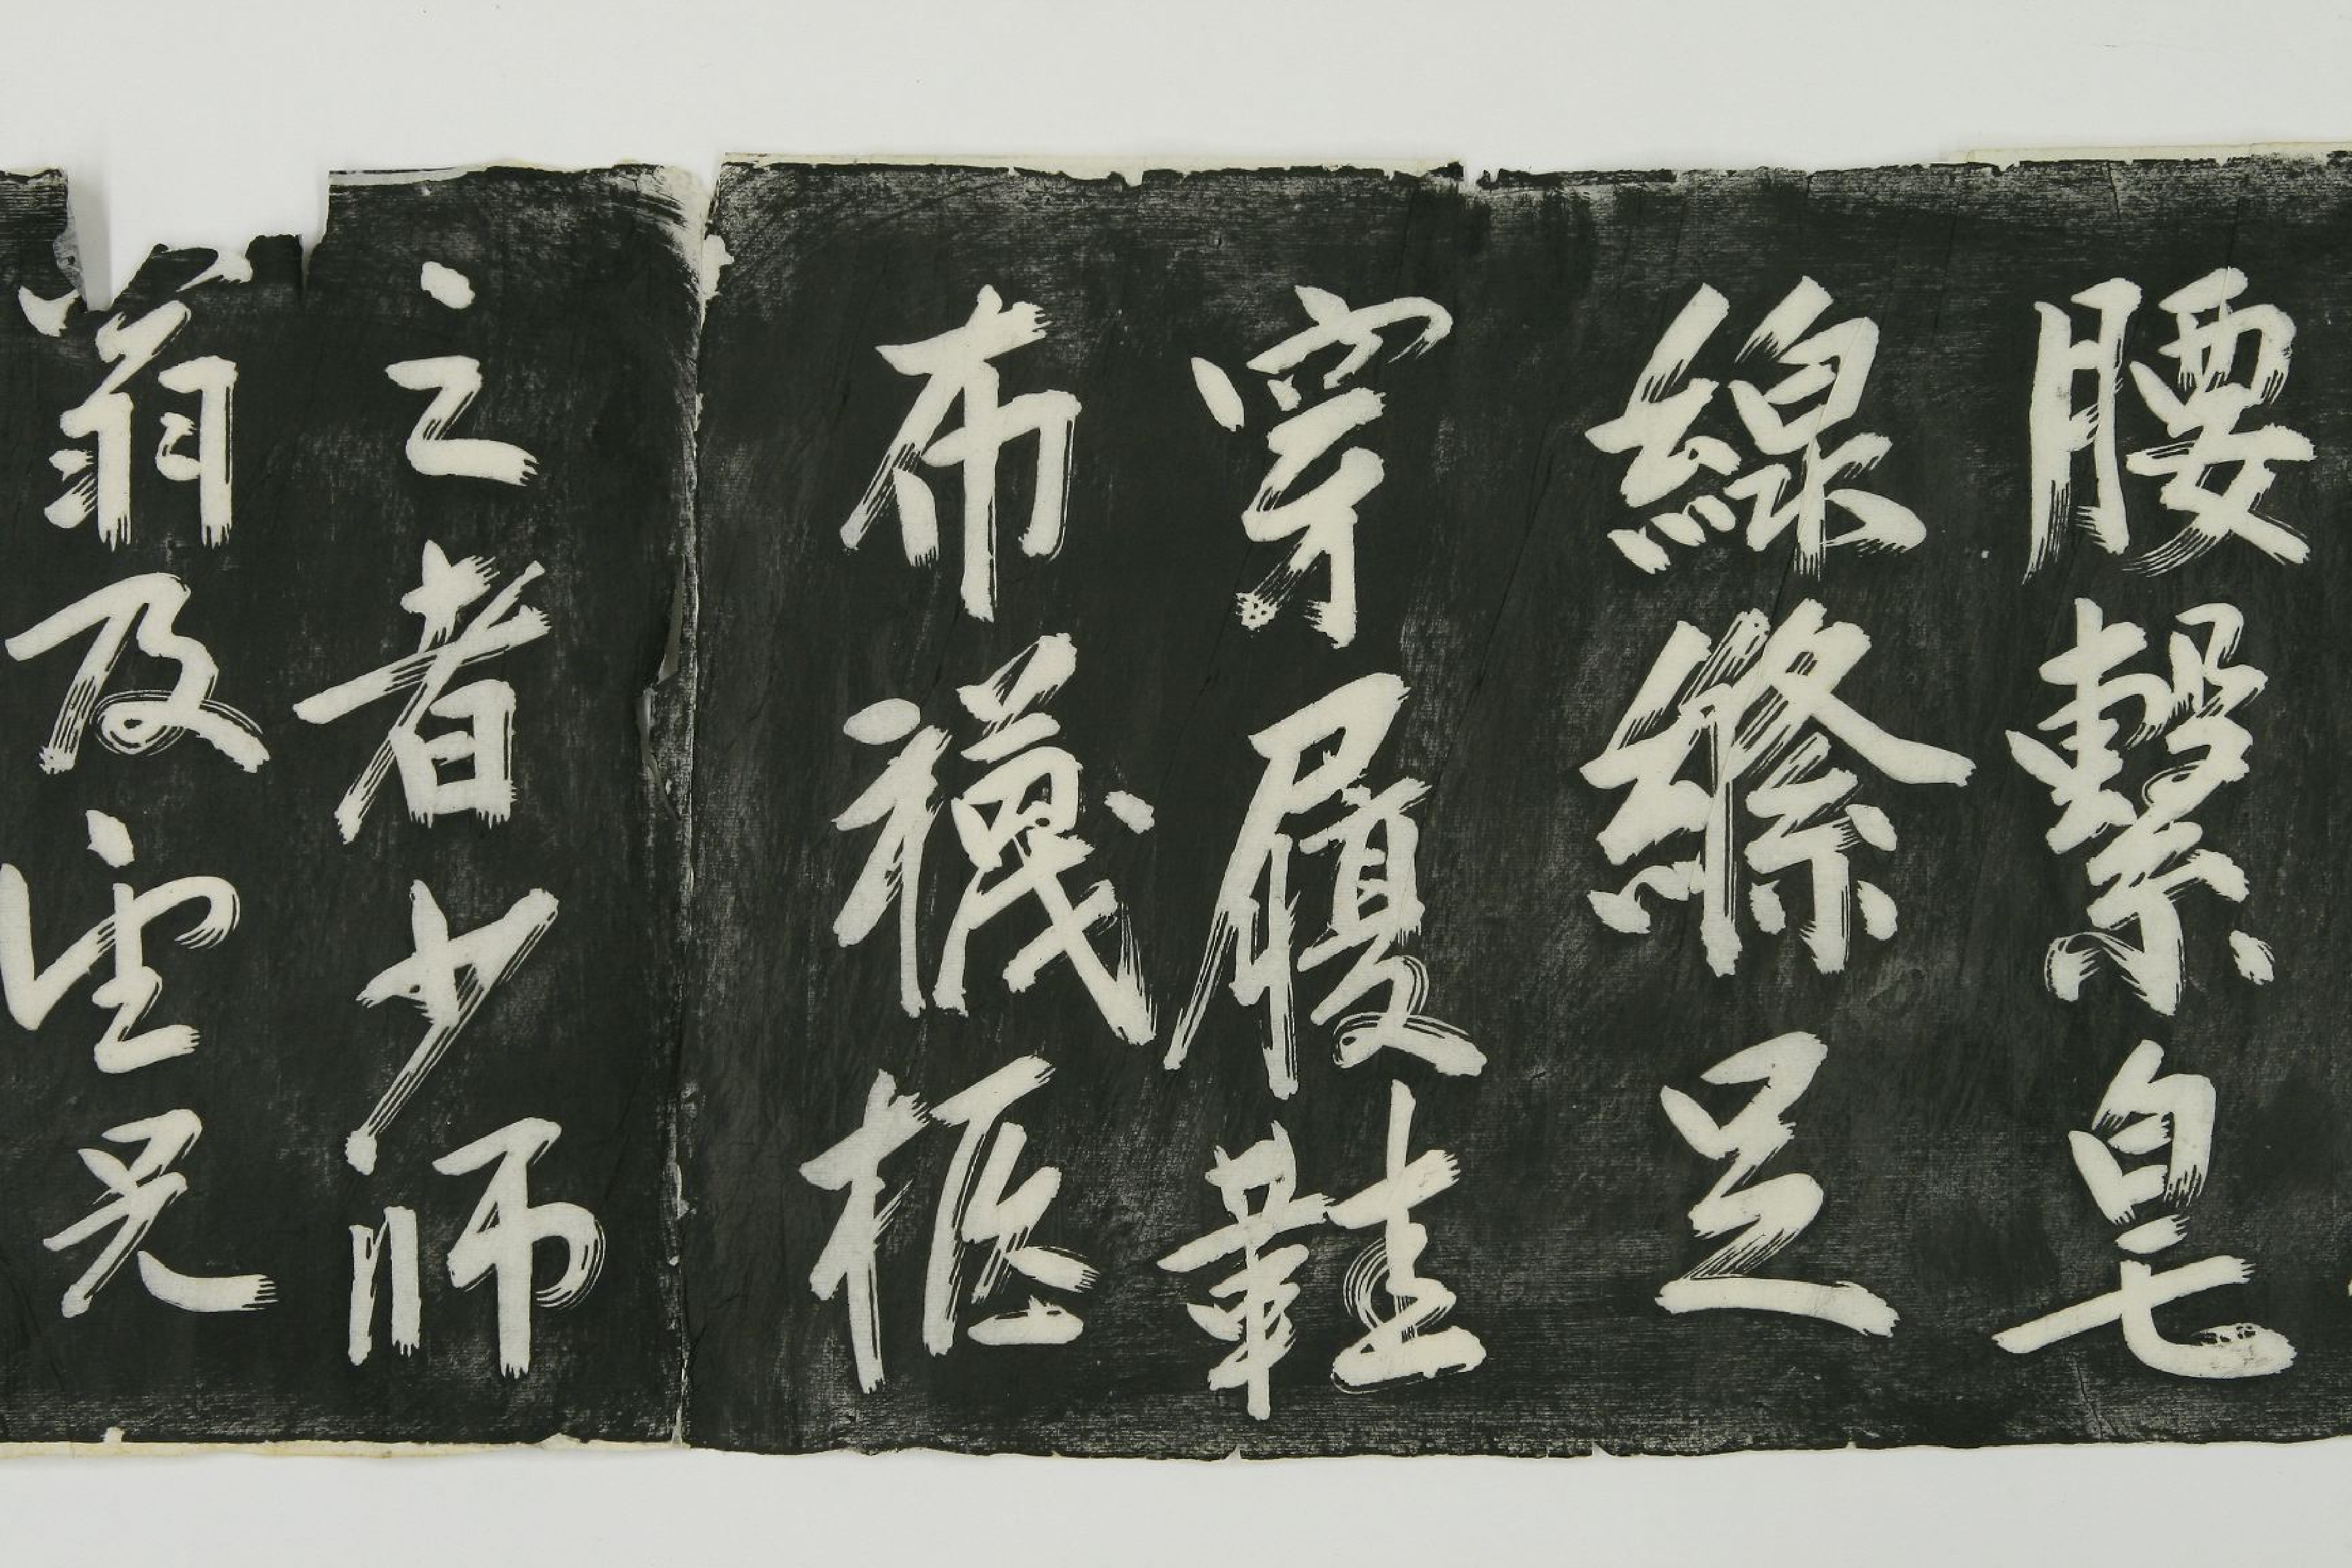 腰繫皂
線絛足
穿履鞋
布襪
之者少師
翁及堂兄